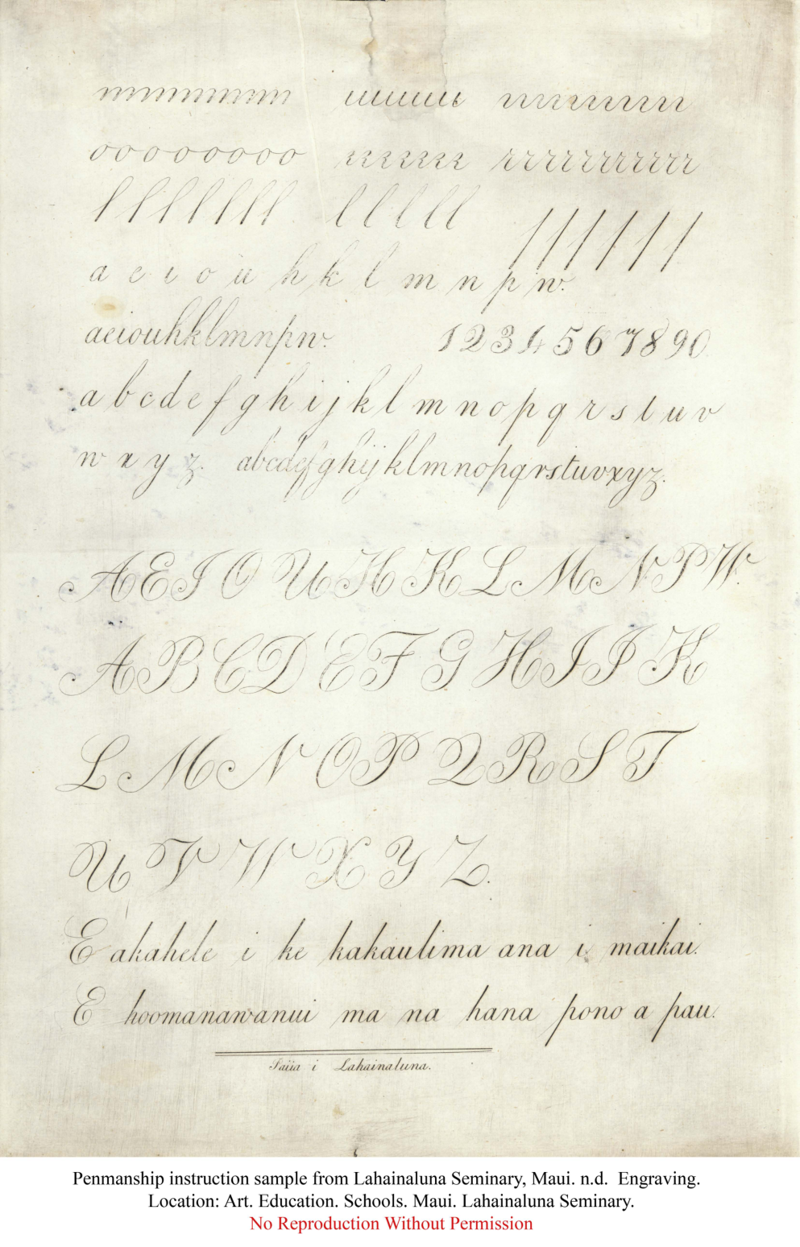 oooooooo
lllllll lllll
a e i o u h k l m n p w.
aeiouhklmnpw. 1234567890
a b c d e f g h i j k l m n o p q r s t u v
w x y z. abcdefghijklmnopqrstuvxyz.
A E I O U H K L M N P W.
A B C D E F G H I J K
L M N O P Q R S T
U V W X Y Z.
E akahele i ke kakaulima ana i maikai.
E hoomanawanui ma na hana pono a pau.
Paiia i Lahainaluna.
Penmanship instruction sample from Lahainaluna Seminary, Maui. n.d. Engraving.
Location: Art. Education. Schools. Maui. Lahainaluna Seminary.
No Reproduction Without Permission